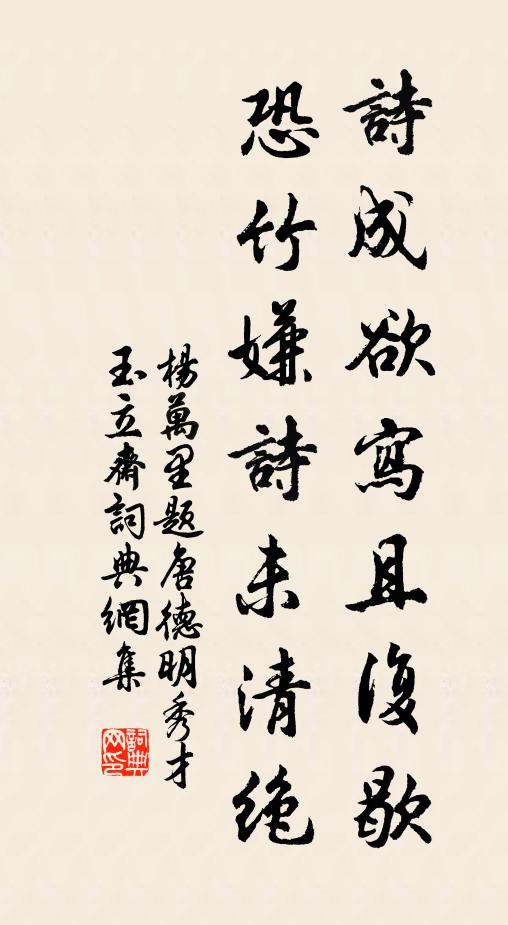 詩成欲寫且復歇
恐竹嫌詩未清絶
楊萬里題唐德明秀才
玉立齋詞典網集
詞典网印